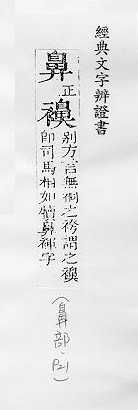 經典文字辨證書
鼻正
襣別方言無之袴謂之襣
即司馬相如犢鼻褌字
(鼻部·P21)